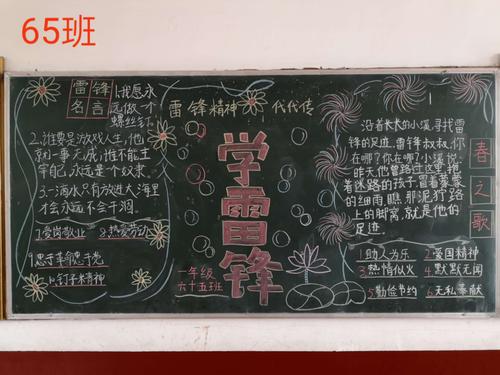 65班
雷锋
名言
1.我愿永
远做一个
螺丝钉
2.谁要是游戏人生,他
就一事无成,谁不能主
宰自己,永远是个奴隶。
3.一滴水只有放进大海里
才会永远不会干涸。
7爱岗敬业
8.热爱劳动
10钉子木精神
雷锋精神
代代传
学雷锋
一年级
六十五班
沿着长长的小溪,寻找雷
锋的足迹。雷锋叔叔,你
在哪?你在哪?小溪说:
昨天,他曾路过这里,抱
着迷路的孩子,冒着蒙蒙
的细雨。瞧,那泥泞路
上的脚窝,就是他的
足迹。
春之歌
1助人为乐
2爱国精神
3热情似火
4默默无闻
5勤俭节约
6无私奉献